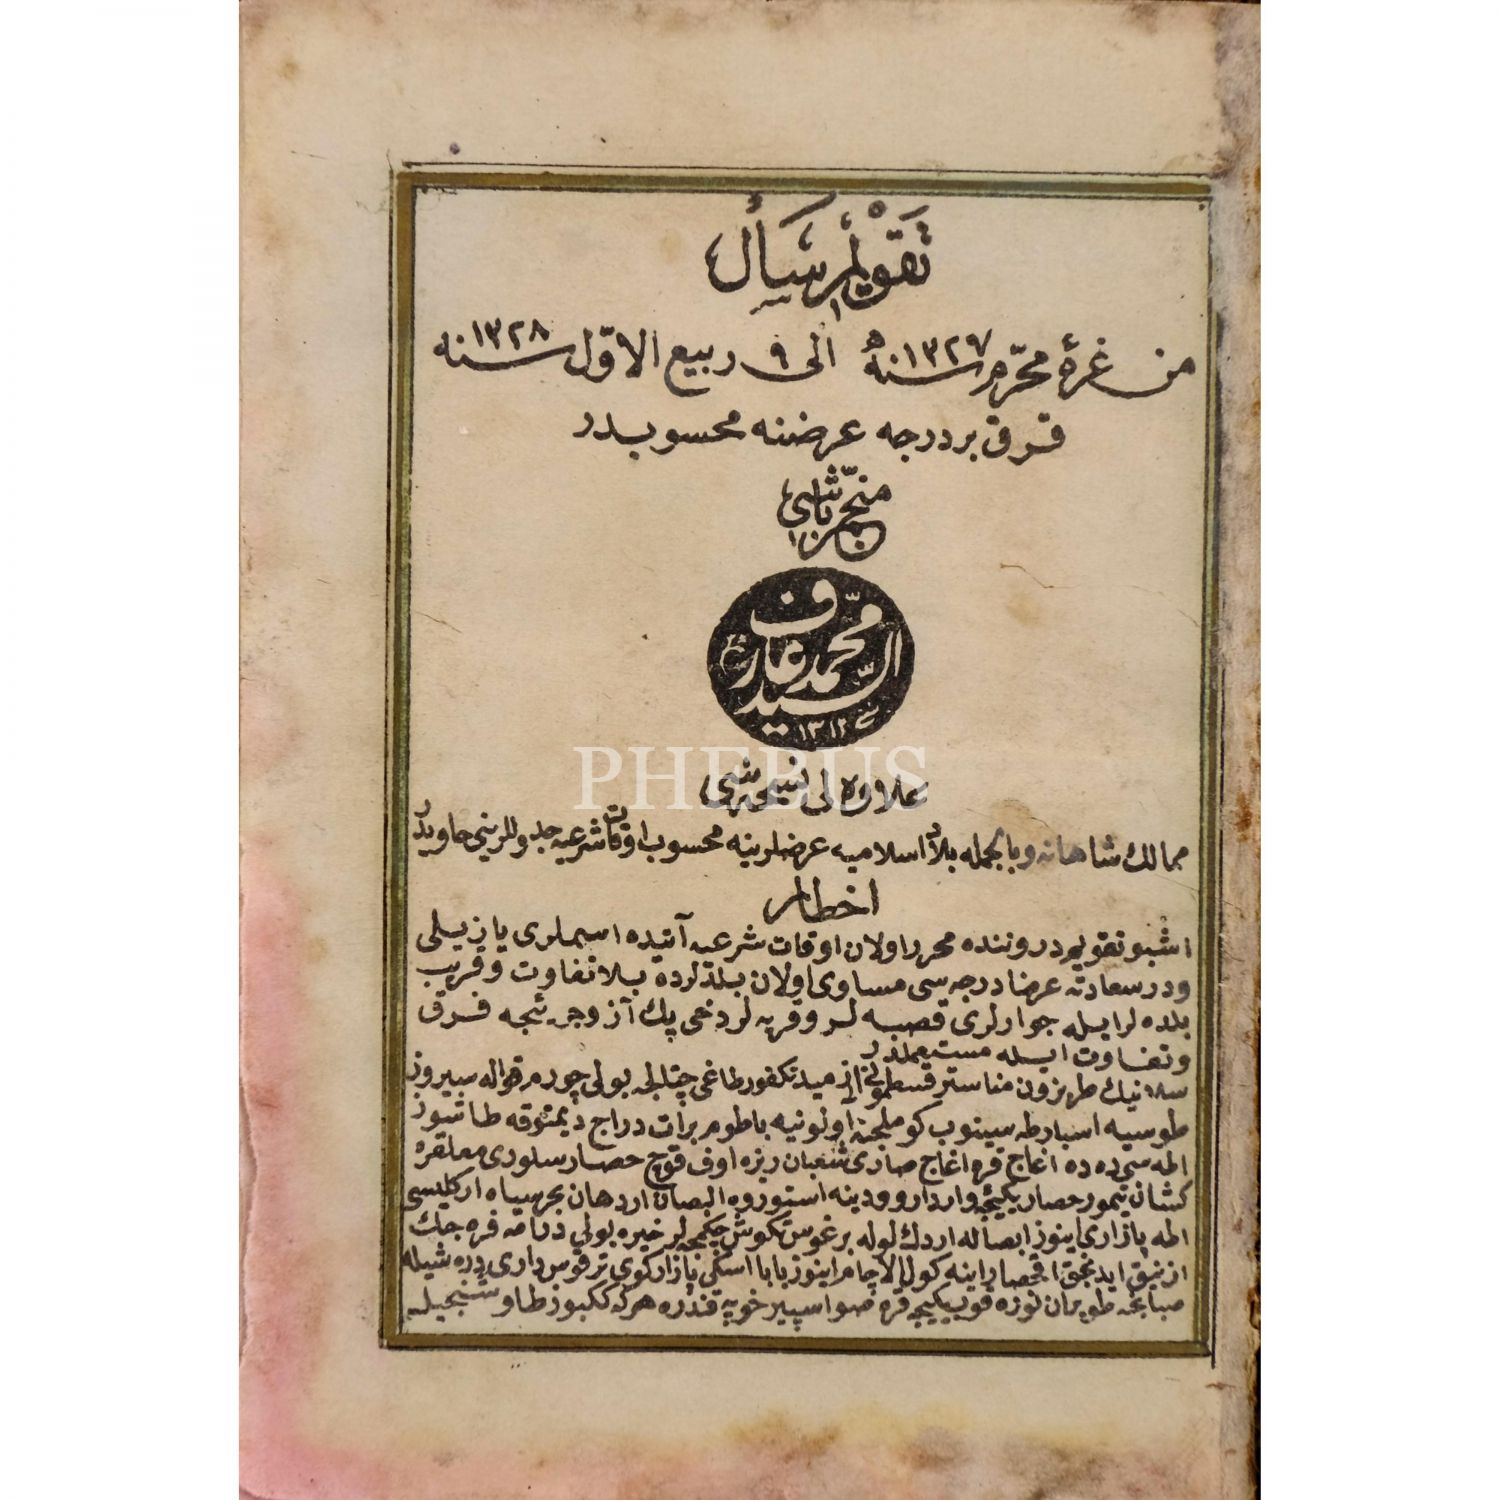 تقويم سال
من غرۀ محرّم سنۀ ١٣٢٧ الى ٩ ربيع الاوّل سنه ١٣٢٨
قرق بر درجه عرضنه محسوبدر
منجّم باشى
السيد محمّد عارف
سنه ١٣١٢
PHEBUS
علاوه لى نسخه سى
ممالك شاهانه و بالجمله بلاد اسلاميه عرضلرينه محسوب اوقات شرعيه جدوللرينى حاويدر
اخطار
اشبو تقويم دروننده محرر اولان اوقات شرعيه آتيده اسملرى يازيلى
و در سعادته عرضا درجه سى مساوى اولان بلدلرده بلا تفاوت و قريب
بلده لر ايسه جوارلرى قصبه لر و قريه لر دخى پك آز و جزئيجه فرق
و تفاوت ايله مستعملدر
سلانيك طربزون مناستر قسطمونى ازميد تكفورطاغى چتالجه بولى چورم قواله سيروز
طوسيه اسبارطه سينوب كوملجنه اونيه باطوم برات دراج ديمتوقه طاشوز
اطه سى دده اغاج قره اغاج صارى شعبان ريزه اوف قوچ حصار سلورى معلقره
كشان تيمورحصار يكيجه واردار وودينه استوروه البصان اردهان بحرسياه اركليسى
اطه پازارى اينوز ابصاله اردك لوله برغوس تكوش چكمجه لر خيره بولى درامه قره جك
ازنيق ايدنجق اقحصار اينه كول الاچام اينوز بابا اسكى پازاركوى ترقوس دارى دره شيله
صبانجه طومان نوزه قوب يكيجه قره صو اسپير خوپه قندره هركه ككبوز طاوسنجيله